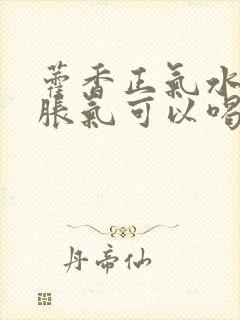 藿香正氣水
脹氣可以喝
丹帝仙